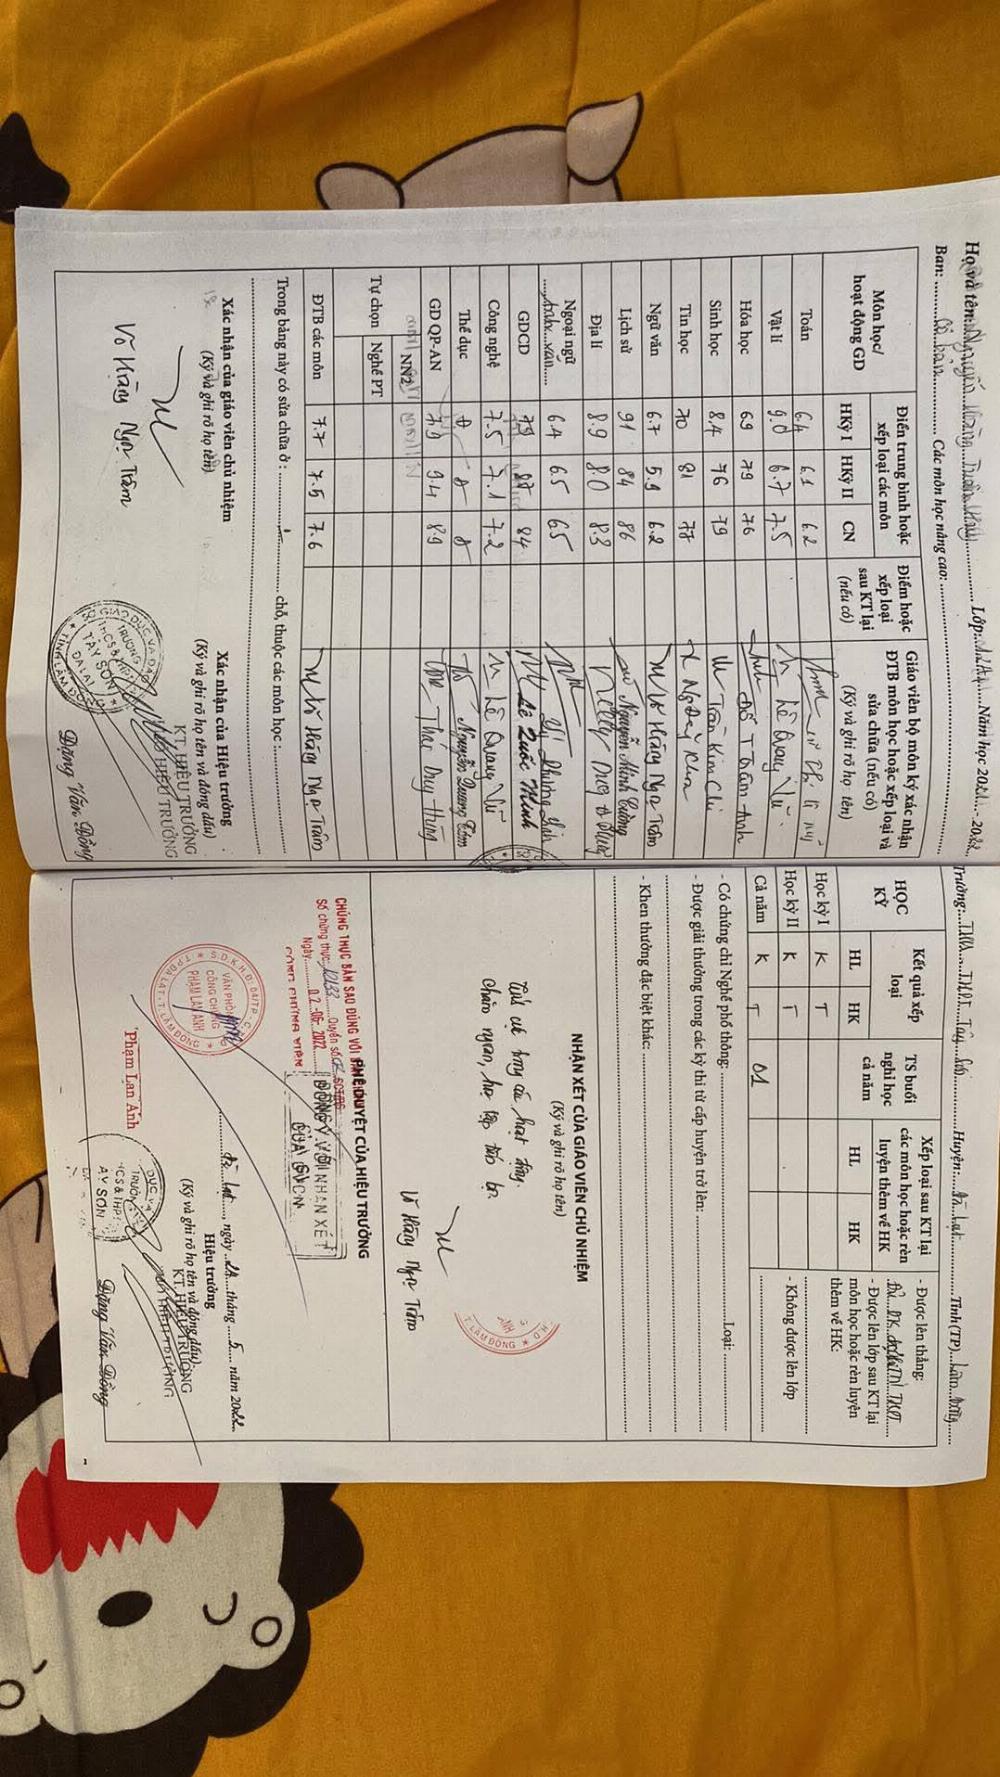 Họ và tên: Nguyễn Hoàng Lớp: Năm học 2021 - 2022
Ban: Cơ bản Các môn học nâng cao:
Môn học/ hoạt động GD
Điểm trung bình hoặc xếp loại các môn
HKỳ I HKỳ II CN
Điểm hoặc xếp loại sau KT lại (nếu có)
Giáo viên bộ môn ký xác nhận ĐTB môn học hoặc xếp loại và sửa chữa (nếu có)
(Ký và ghi rõ họ tên)
Toán 6.4 6.1 6.2
Vật lí 9.0 6.7 7.5 Lê Quang Vũ
Hóa học 69 79 76 Đỗ T Trâm Anh
Sinh học 8.4 76 79 Trần Kim Chi
Tin học 70 81 77
Ngữ văn 6.7 5.9 6.2 Võ Hằng Ngọc Trâm
Lịch sử 91 84 86 Nguyễn Minh Cường
Địa lí 8.9 8.0 8.3
Ngoại ngữ 6.4 6.5 65
GDCD 79 87 84 Lê Quốc Minh
Công nghệ 7.5 7.1 7.2 Lê Quang Vũ
Thể dục Đ Đ Đ Nguyễn Quang
GD QP-AN 79 9.4 8.9 Thái Duy Hùng
Tự chọn NN2
Nghề PT
ĐTB các môn 7.7 7.5 7.6 Võ Hằng Ngọc Trâm
Trong bảng này có sửa chữa ở: chỗ, thuộc các môn học:
Xác nhận của giáo viên chủ nhiệm
(Ký và ghi rõ họ tên)
Võ Hằng Ngọc Trâm
Xác nhận của Hiệu trưởng
(Ký và ghi rõ họ tên và đóng dấu)
KT. HIỆU TRƯỞNG
PHÓ HIỆU TRƯỞNG
SỞ GIÁO DỤC VÀ ĐÀO
TRƯỜNG
THCS & THPT
TÂY SƠN
ĐÀ LẠT
TỈNH LÂM ĐỒNG
Đặng Văn Đồng
Trường: THCS, THPT Tây Sơn Huyện: Đà Lạt Tỉnh(TP) Lâm Đồng
HỌC KỲ
Kết quả xếp loại
HL HK
TS buổi nghỉ học cả năm
Xếp loại sau KT lại các môn học hoặc rèn luyện thêm về HK
HL HK
Học kỳ I K T
Học kỳ II K T
Cả năm K T 01
- Được lên thẳng:
- Được lên lớp sau KT lại môn học hoặc rèn luyện thêm về HK:
- Không được lên lớp
- Có chứng chỉ Nghề phổ thông: Loại:
- Được giải thưởng trong các kỳ thi từ cấp huyện trở lên:
- Khen thưởng đặc biệt khác:
NHẬN XÉT CỦA GIÁO VIÊN CHỦ NHIỆM
(Ký và ghi rõ họ tên)
Tích cực trong các hoạt động.
Chăm ngoan, học tập tiến bộ.
Võ Hằng Ngọc Trâm
T. LÂM ĐỒNG
PHÊ DUYỆT CỦA HIỆU TRƯỞNG
ĐỒNG Ý VỚI NHẬN XÉT
CỦA GVCN
CHỨNG THỰC BẢN SAO ĐÚNG VỚI
Số chứng thực: Quyển số:
Ngày 02-06-2022
CÔNG CHỨNG VIÊN
VĂN PHÒNG
CÔNG CHỨNG
PHẠM LAN ANH
TP.ĐÀ LẠT - T. LÂM ĐỒNG
Phạm Lan Anh
Đà Lạt, ngày 24 tháng 5 năm 2022
Hiệu trưởng
(Ký và ghi rõ họ tên và đóng dấu)
KT. HIỆU TRƯỞNG
PHÓ HIỆU TRƯỞNG
Đặng Văn Đồng